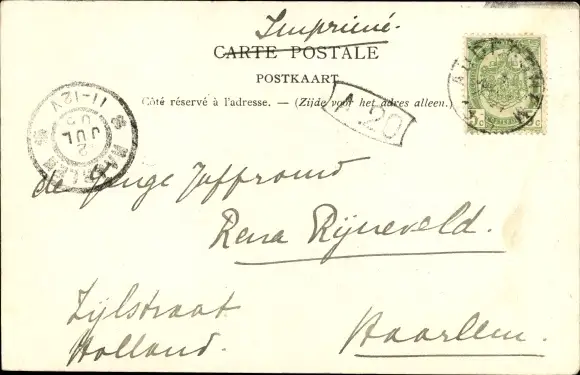 Imprimé.
CARTE POSTALE
POSTKAART
Côté réservé à l'adresse. — (Zijde voor het adres alleen.)
11-12V
2
JUL
05
HAARLEM
A 20
de jonge Juffrouw
Rena Rijneveld.
Zijlstraat
Haarlem.
Holland.